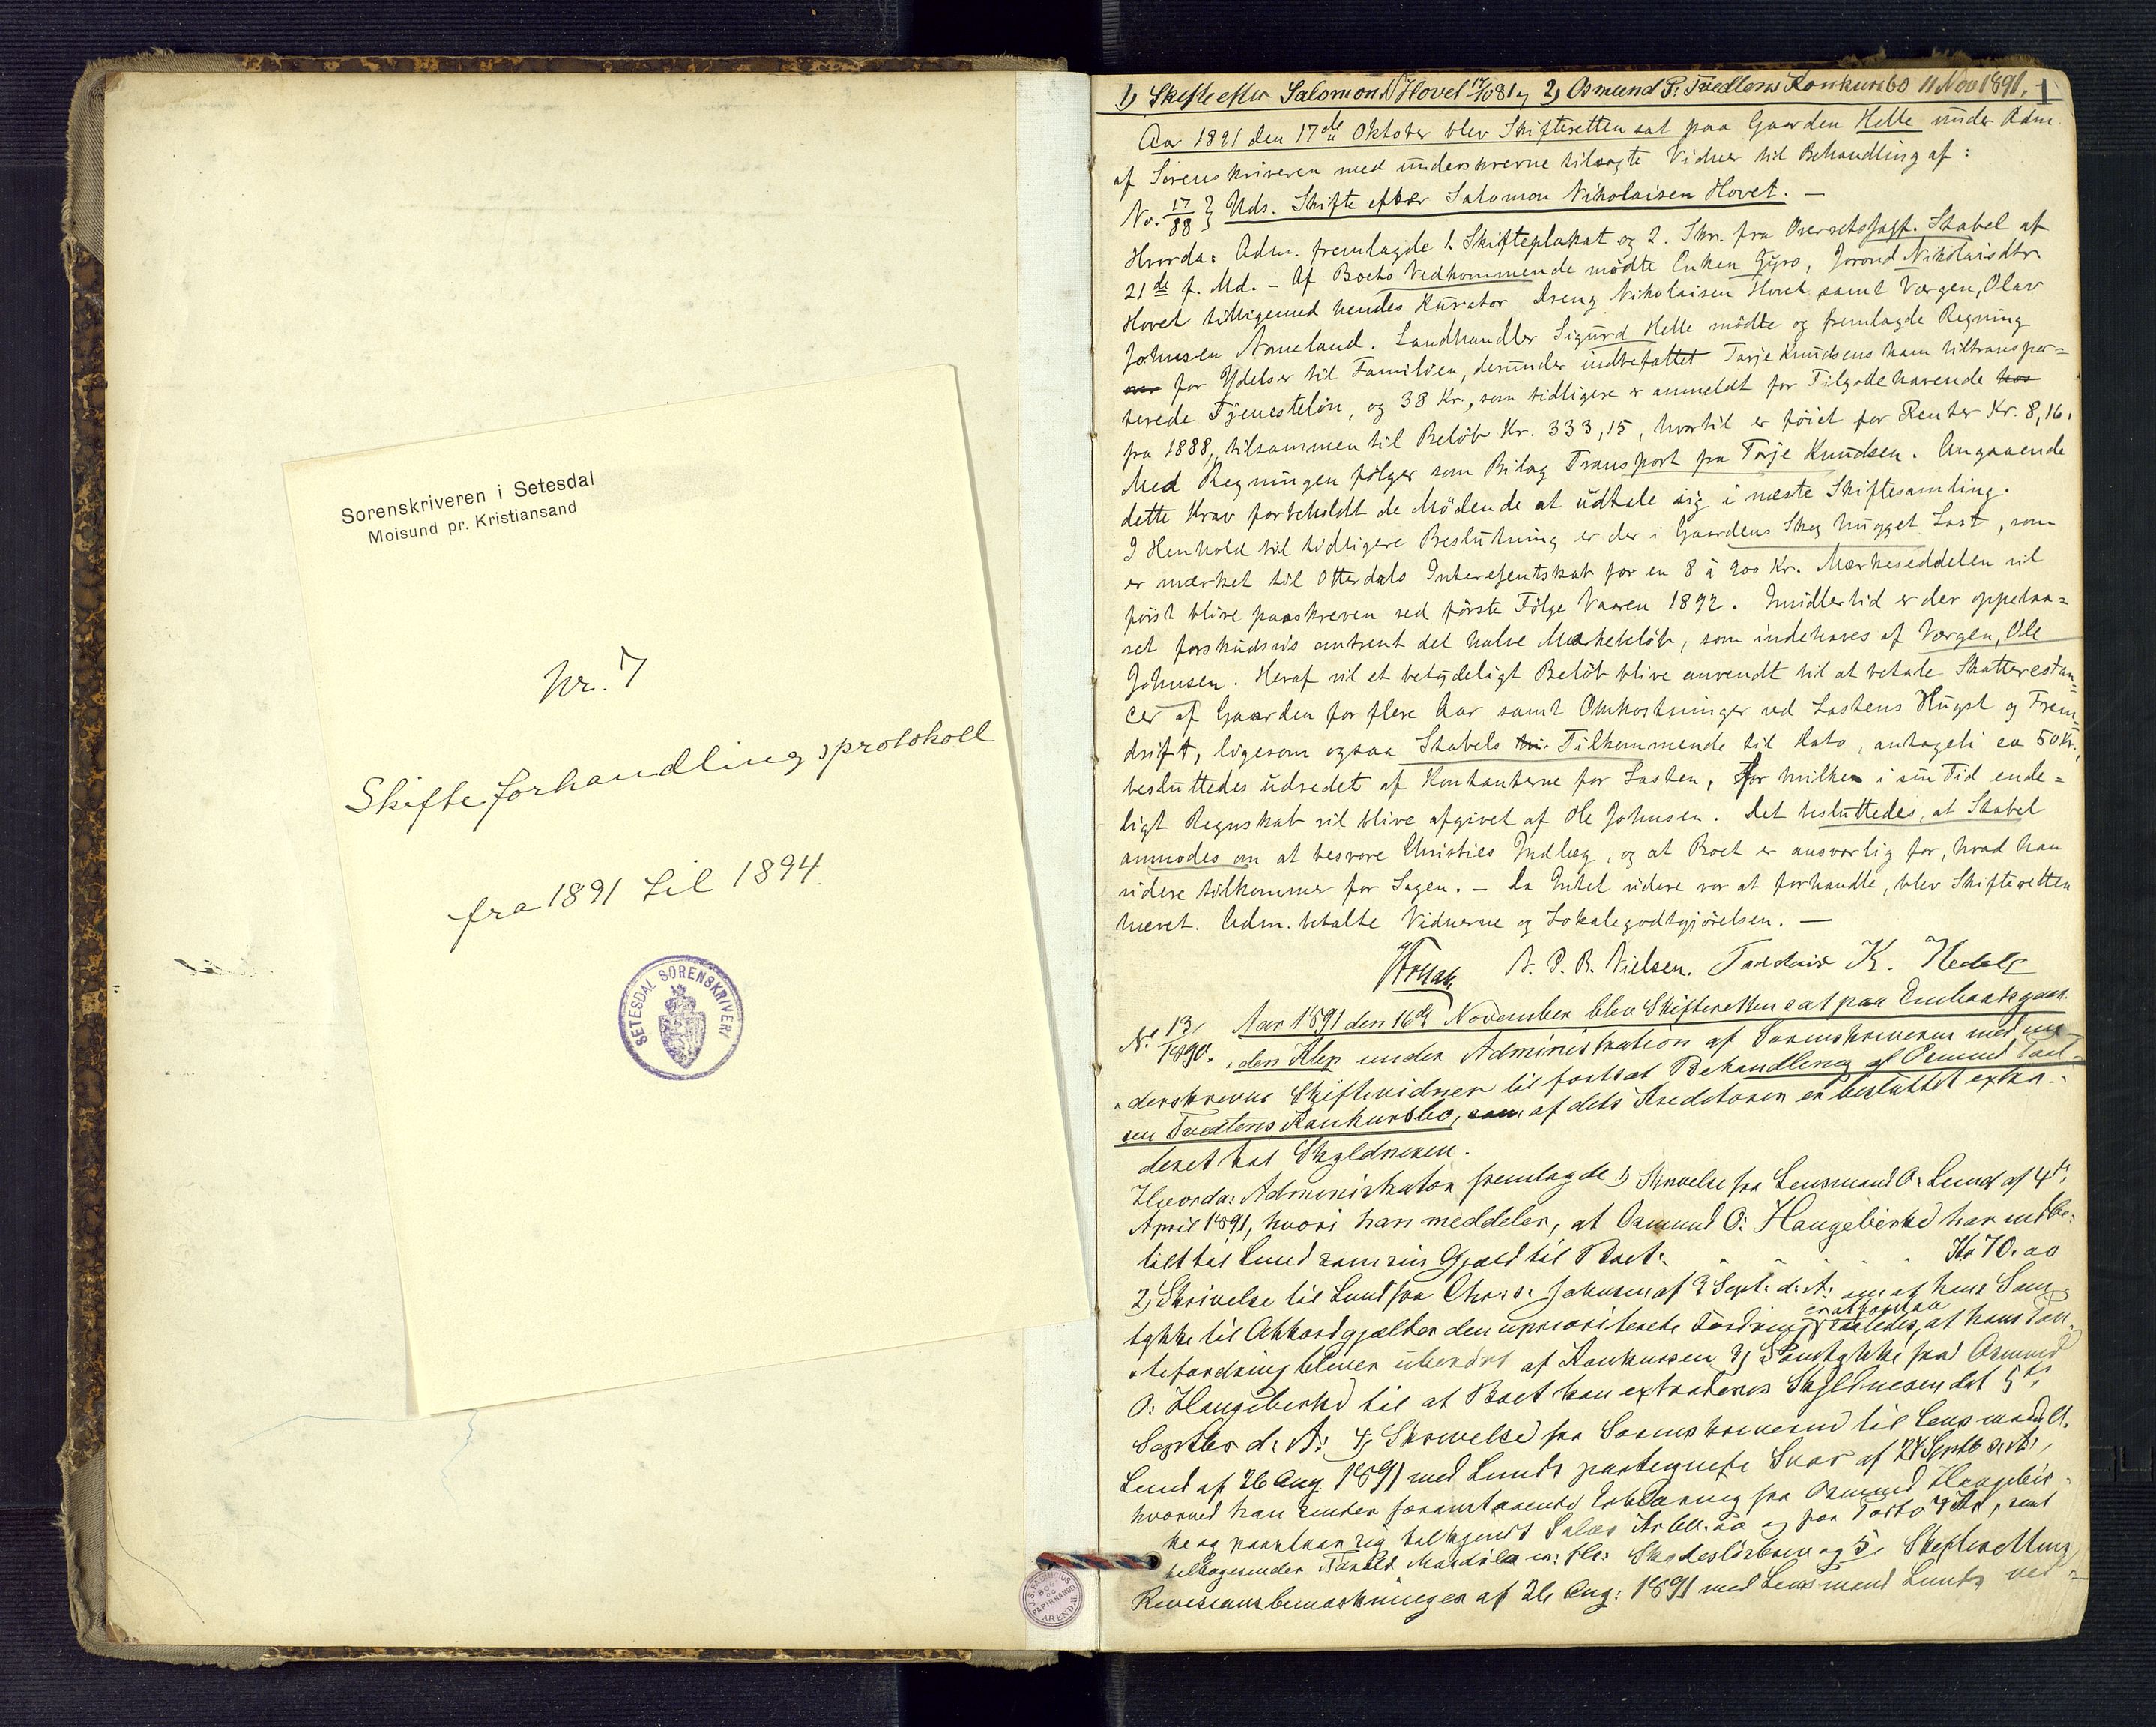 Sorenskriveren i Setesdal
Moisund pr. Kristiansand
Nr. 7
Skifteforhandlingsprotokoll
fra 1891 til 1894.
SETESDAL SORENSKRIVERI
J. S. FABRICIUS BOG OG PAPIRHANDEL ARENDAL
1) Skifte efter Salomon N Hovet 17/10 81 og 2) Osmund P: Tvedtens Konkursbo 11 Nov 1891. 1
Aar 1891 den 17de Oktober blev Skifteretten sat paa Gaarden Helle under Adm.
af Sorenskriveren med underskrevne tilsagte Vidner til Behandling af:
No. 17/88 } Uds. Skifte efter Salomon Nikolaisen Hovet. —
Hvorda: Adm. fremlagde 1. Skifteplakat og 2. Skr. fra Overretssagf. Stabel af
21de f. Md. - Af Boets Vedkommende mödte Enken Gyro, Jorond Nikolaisdtr
Hovet tilligemed hendes Kurator Dreng Nikolaisen Hovet samt Værgen, Olav
Johnsen Nomeland. Landhandler Sigurd Helle mödte og fremlagde Regning
over for Ydelser til Familien, derunder indbefattet Tarje Knudsens ham tiltranspor=
terede Tjenestelön, og 38 Kr., som tidligere er anmeldt for Tilgodehavende hos
fra 1888, tilsammen til Belöb Kr. 333,15, hvortil er föiet for Renter Kr. 8,16.
Med Regningen fölger som Bilag Transport fra Tarje Knudsen. Angaaende
dette Krav forbeholdt de Mödende at udtale sig i næste Skiftesamling.
I Henhold til tidligere Beslutning er der i Gaardens Skog hugget Last, som
er mærket til Otterdals Interesentskab for en 8 à 900 Kr. Mærkeseddelen vil
först blive paaskreven ved förste Fölge Vaaren 1892. Imidlertid er der oppebaa=
ret forskudsvis omtrent det halve Mærkebelöb, som indehaves af Værgen, Ole
Johnsen. Heraf vil et betydeligt Belöb blive anvendt til at betale Skatterestan=
cer af Gaarden for flere Aar samt Omkostninger ved Lastens Hugst og Frem=
drift, ligesom ogsaa Stabels Tilkommende til Dato, antagelig ca 50 Kr.,
besluttedes udredet af Kontanterne for Lasten, for hvilken i sin Tid ende=
ligt Regnskab vil blive afgivet af Ole Johnsen. Det besluttedes, at Stabel
anmodes om at besvare Christies Indlæg, og at Boet er ansvarlig for, hvad han
videre tilkommer for Sagen. - Da Intet videre var at forhandle, blev Skifteretten
hævet. Adm. betalte Vidnerne og Lokalegodtgjörelsen. —
N. P. B. Nielsen. K.
No 13/1890. Aar 1891 den 16de November blev Skifteretten sat paa Embedsgaar
den Klep under Administration af Sorenskriveren med un
derskrevne Skiftevidner til fortsat Behandling af Osmund Paal
sen Tvedtens Konkursbo, som af dets Kreditorer er besluttet extra
deret til Skyldneren.
Hvorda: Administrator fremlagde 1) Skrivelse fra Lensmand O. Lund af 4de
April 1891, hvori han meddeler, at Osmund O: Haugebirke har indbe
talt til Lund som sin Gjæld til Boet . . . . Kr 70. 00
2) Skrivelse til Lund fra Chr. S. Johnsen af 9 Sept: d: A: om at hans Sam
tykke til Akkord gjælder den uprioriterede Fordring er at forstaa saaledes, at hans Pan
tefordring bliver uberört af Konkursen 3) Samtykke fra Osmund
O: Haugebirke til at Boet kan extraderes Skyldneren dat 5te
Septbr d: A: 4) Skrivelse fra Sorenskriveren til Lensmand
Lund af 26 Aug. 1891 med Lunds paategnede Svar af 24 Septb d: A:,
hvorved han sender foranstaaende Erklæring fra Osmund Haugebir
ke og og paa Porto samt
tilbagesender Skadeslösbrev og 5. Skifterettens
Revisionsbemærkninger af 26 Aug: 1891 med Lensmand Lunds ved